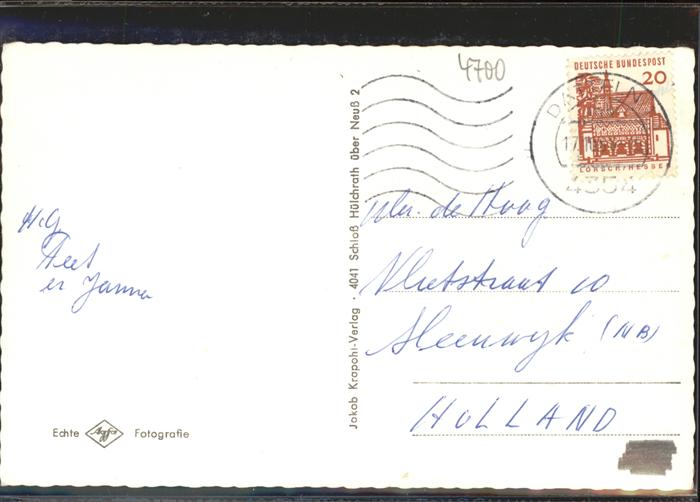 4700
DEUTSCHE BUNDESPOST
20
DATTELN
17.
4354
LORSCH/HESSEN
Jakob Krapohl-Verlag · 4041 Schloß Hülchrath über Neuß 2
H.G.
en Janna
de Haag
Vlietstraat 10
Steenwijk (NB)
HOLLAND
Echte Agfa Fotografie